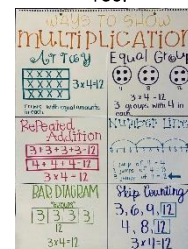 YES!
WAYS TO SHOW
MULTIPLICATION
Array
3x4=12
rows with equal amounts
in each.
Equal Groups
3x4=12
3 groups with 4 in
each
Repeated
Addition
3+3+3+3=12
4+4+4=12
3x4=12
Number Line
3x4=12
BAR DIAGRAM
3 3 3 3
12
3x4=12
Skip Counting
3,6,9,12
4,8,12
3x4=12